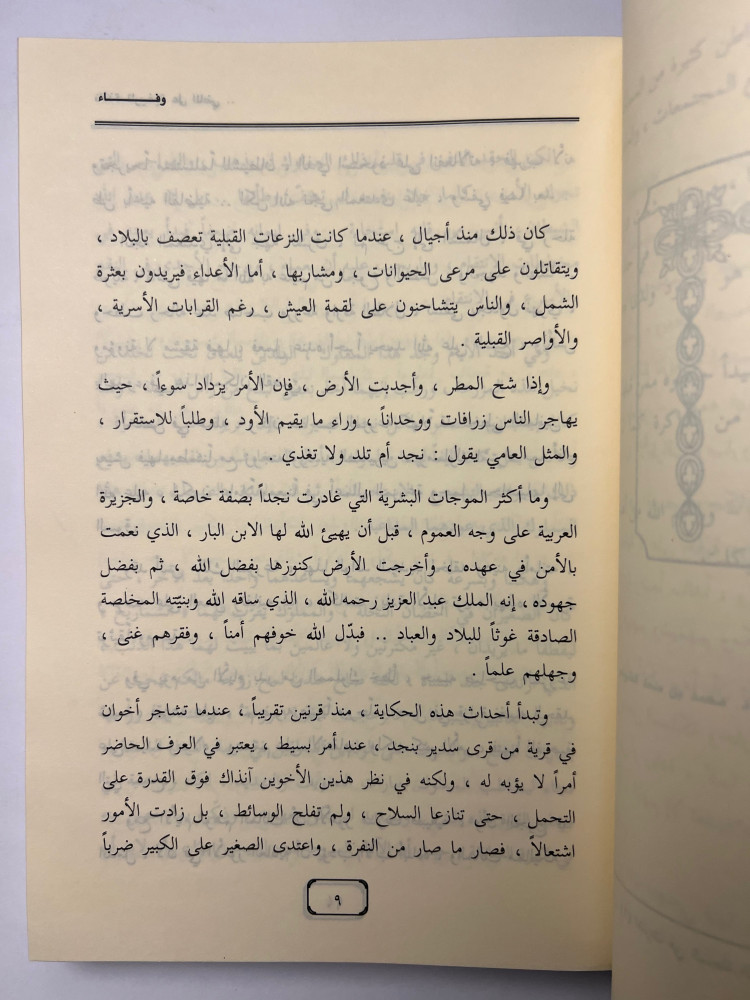 وفـــــــاء
كان ذلك منذ أجيال ، عندما كانت النزعات القبلية تعصف بالبلاد ،
ويتقاتلون على مرعى الحيوانات ، ومشاربها ، أما الأعداء فيريدون بعثرة
الشمل ، والناس يتشاحنون على لقمة العيش ، رغم القرابات الأسرية ،
والأواصر القبلية .
وإذا شح المطر ، وأجدبت الأرض ، فإن الأمر يزداد سوءاً ، حيث
يهاجر الناس زرافات ووحداناً ، وراء ما يقيم الأود ، وطلباً للاستقرار ،
والمثل العامي يقول : نجد أم تلد ولا تغذي .
وما أكثر الموجات البشرية التي غادرت نجداً بصفة خاصة ، والجزيرة
العربية على وجه العموم ، قبل أن يهيئ الله لها الابن البار ، الذي نعمت
بالأمن في عهده ، وأخرجت الأرض كنوزها بفضل الله ، ثم بفضل
جهوده ، إنه الملك عبد العزيز رحمه الله ، الذي ساقه الله وبنيّته المخلصة
الصادقة غوثاً للبلاد والعباد .. فبدّل الله خوفهم أمناً ، وفقرهم غنى ،
وجهلهم علماً .
وتبدأ أحداث هذه الحكاية ، منذ قرنين تقريباً ، عندما تشاجر أخوان
في قرية من قرى سدير بنجد ، عند أمر بسيط ، يعتبر في العرف الحاضر
أمراً لا يؤبه له ، ولكنه في نظر هذين الأخوين آنذاك فوق القدرة على
التحمل ، حتى تنازعا السلاح ، ولم تفلح الوسائط ، بل زادت الأمور
اشتعالاً ، فصار ما صار من النفرة ، واعتدى الصغير على الكبير ضرباً
٩